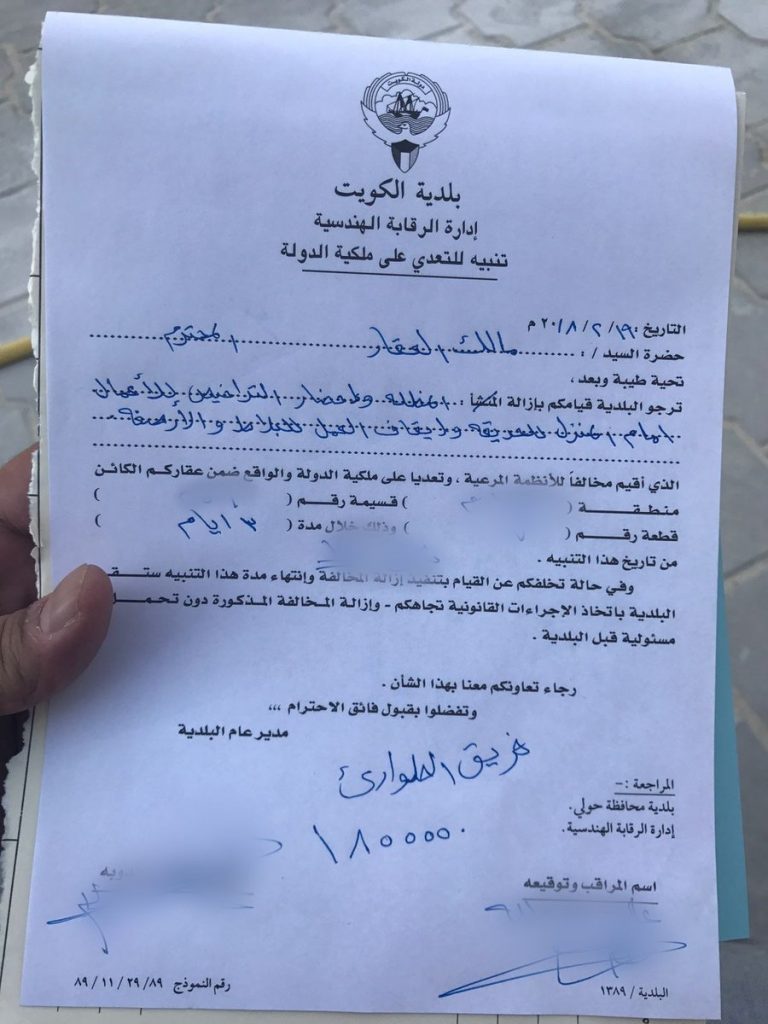 دولة الكويت
بلدية الكويت
إدارة الرقابة الهندسية
تنبيه للتعدي على ملكية الدولة
التاريخ : ١٩ / ٢ / ٢٠١٨ م
حضرة السيد / : مالك العقار المحترم
تحية طيبة وبعد ،
ترجو البلدية قيامكم بإزالة المنشأ : المظلة واحضار التراخيص للأعمال
امام المنزل للحديقة وايقاف العمل للبلاط والأرصفة
الذي أقيم مخالفاً للأنظمة المرعية ، وتعديا على ملكية الدولة والواقع ضمن عقاركم الكائن
منطقة ( ) قسيمة رقم ( )
قطعة رقم ( ) وذلك خلال مدة ( ٣ ايام )
من تاريخ هذا التنبيه .
وفي حالة تخلفكم عن القيام بتنفيذ إزالة المخالفة وإنتهاء مدة هذا التنبيه ستقـ
البلدية باتخاذ الإجراءات القانونية تجاهكم - وإزالة المخالفة المذكورة دون تحمل
مسئولية قبل البلدية .
رجاء تعاونكم معنا بهذا الشأن .
وتفضلوا بقبول فائق الاحترام ،،،
مدير عام البلدية
فريق الطوارئ
١٨٠٠٠٠٠
المراجعة :-
بلدية محافظة حولي.
إدارة الرقابة الهندسية.
اسم المراقب وتوقيعه
البلدية / ١٣٨٩
رقم النموذج ٨٩ / ١١ / ٢٩ / ٨٩